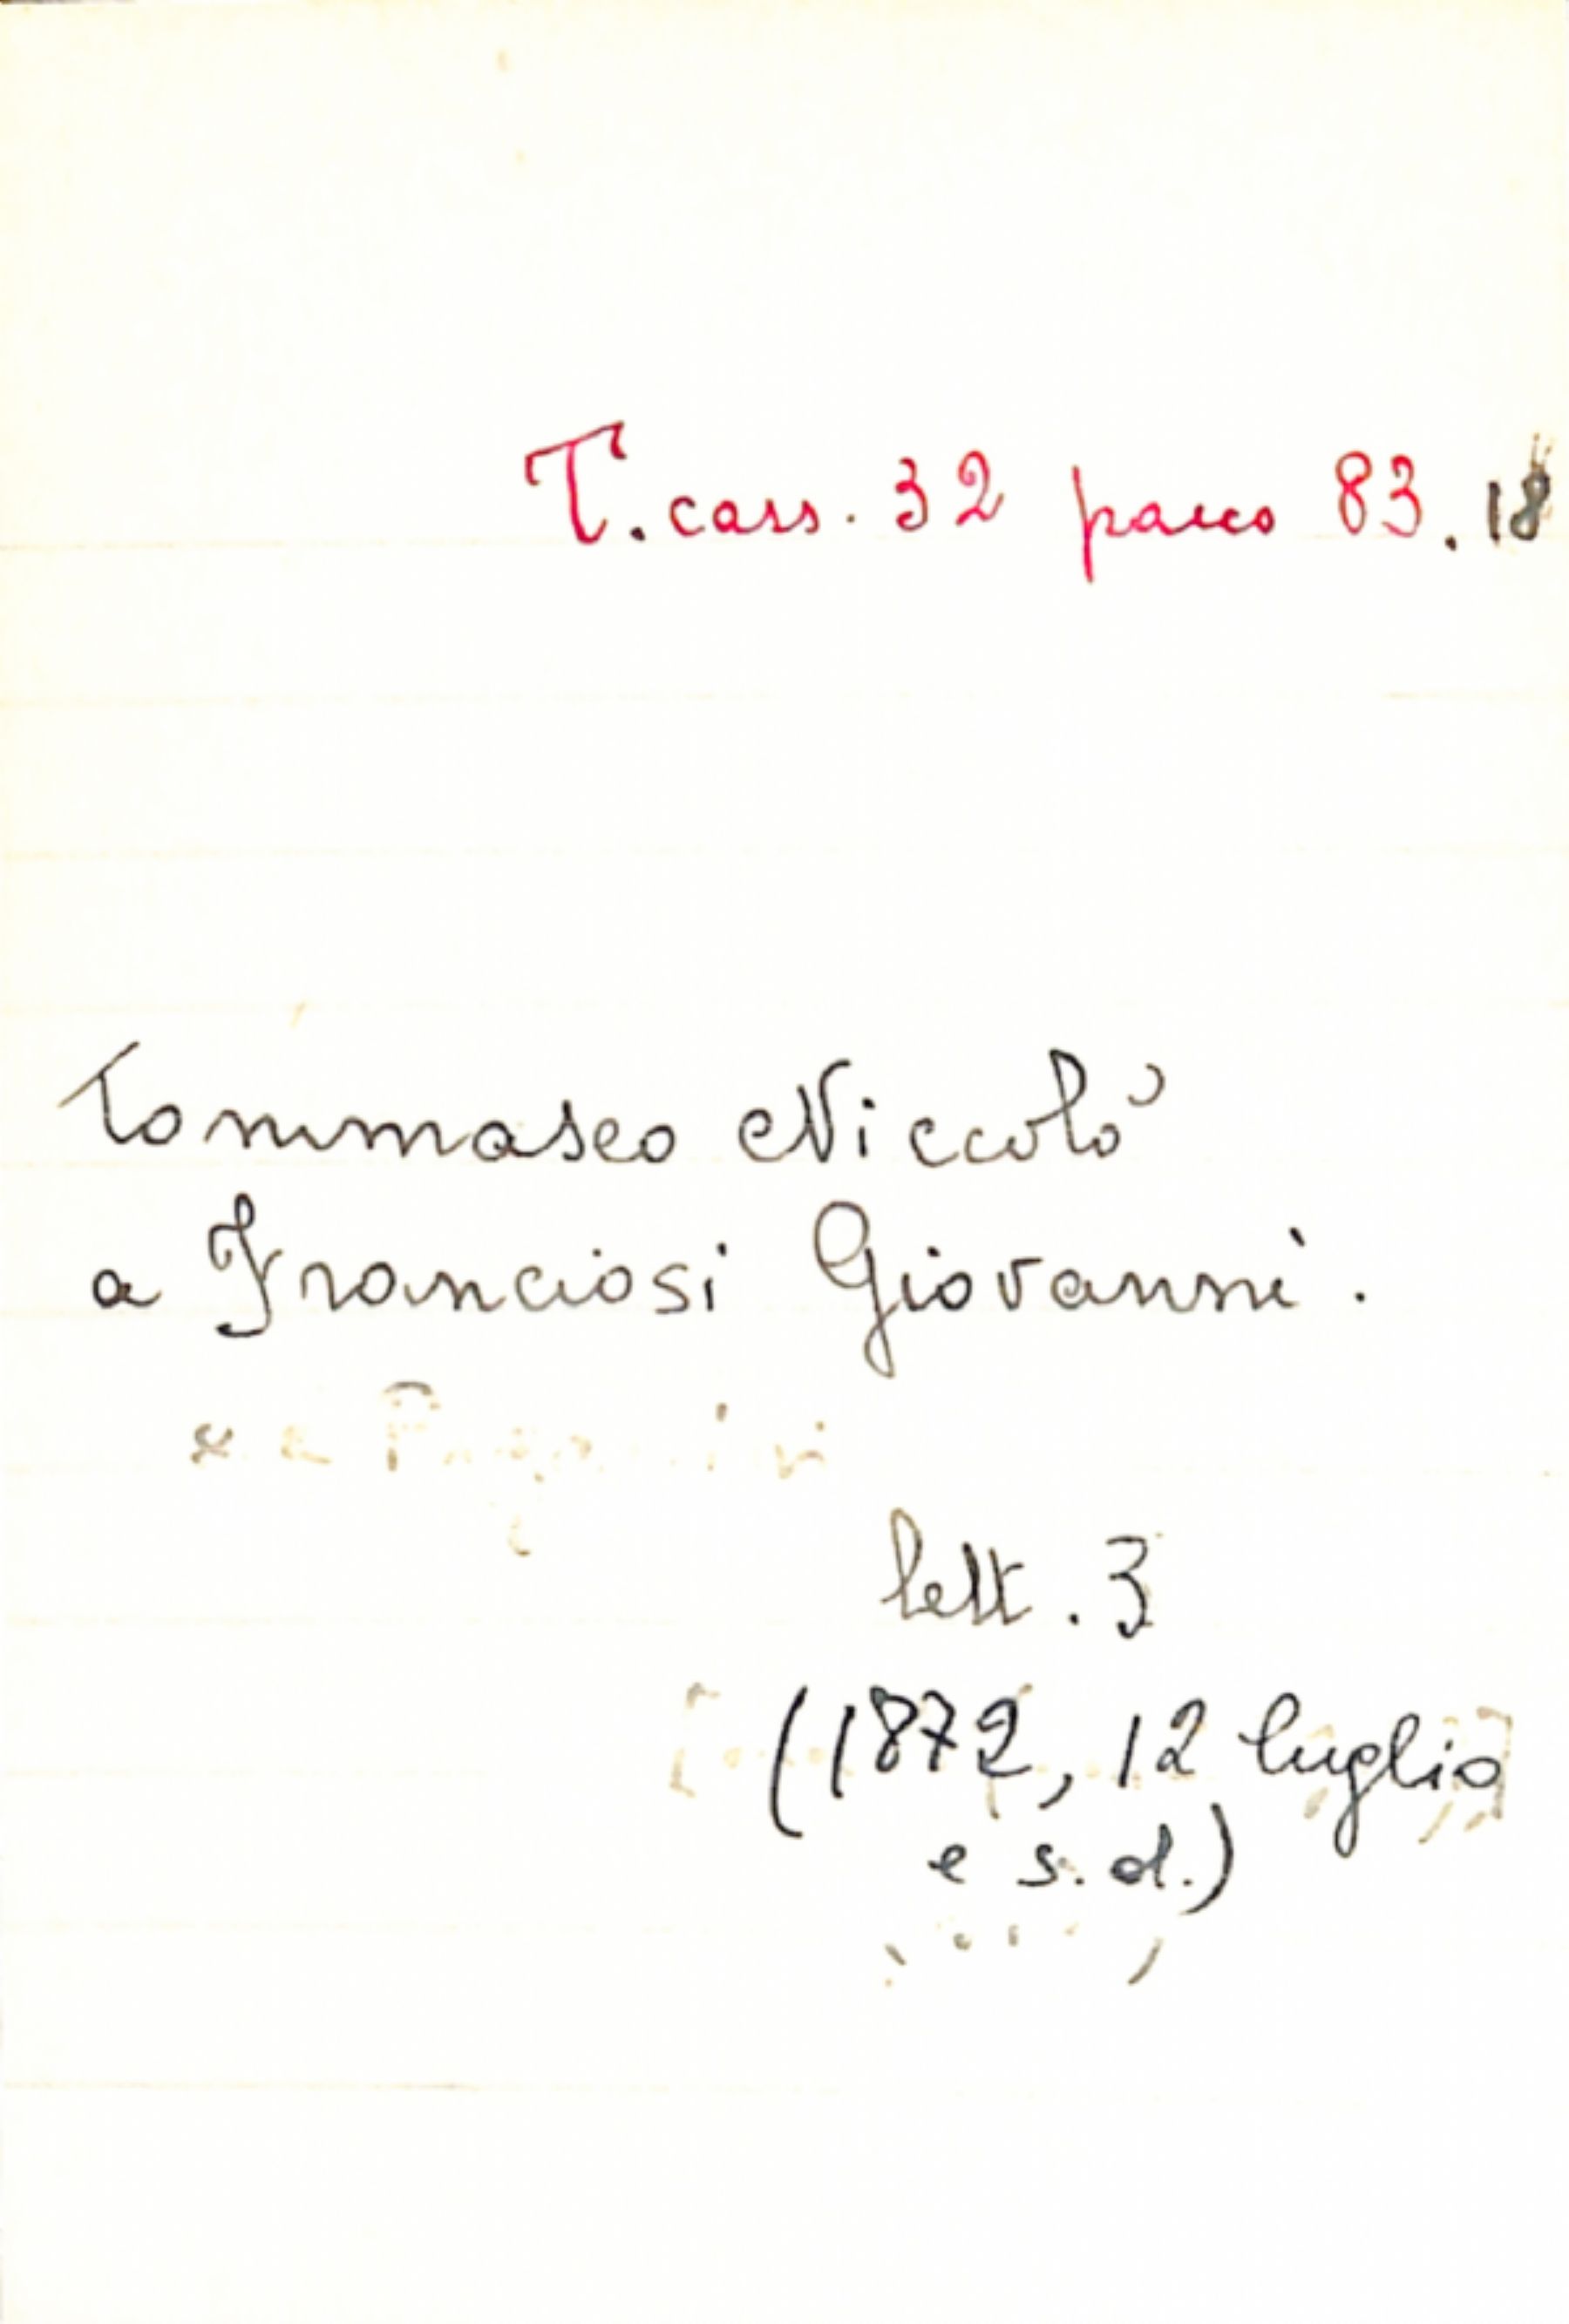 T. cass. 32 pacco 83.18
Tommaseo Niccolò
a Franciosi Giovanni.
lett. 3
(1872, 12 luglio
e s.d.)